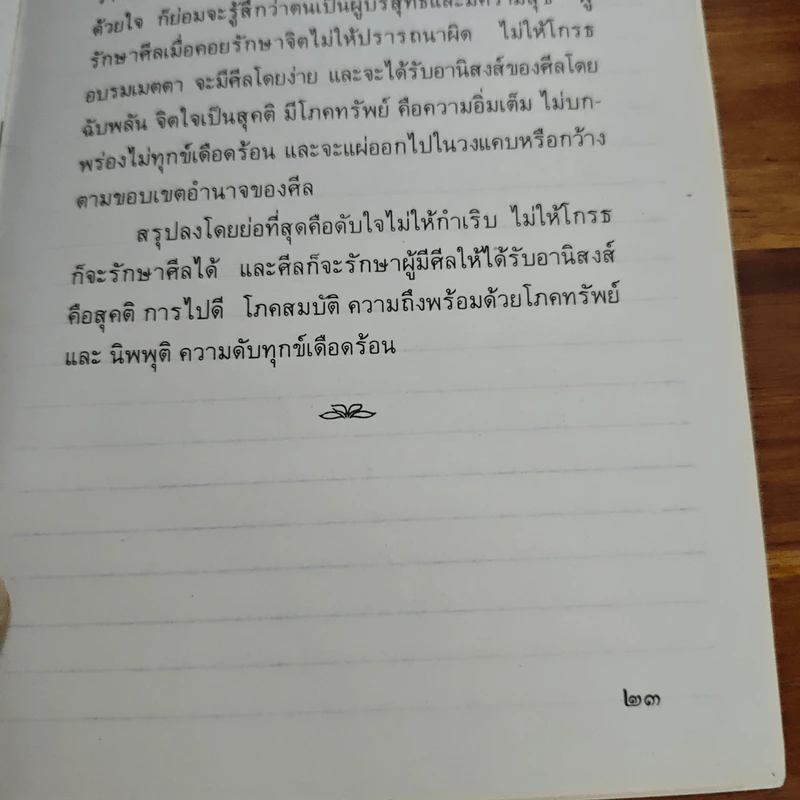 ด้วยใจ ก็ย่อมจะรู้สึกว่าตนเป็นผู้บริสุทธิ์และมีความสุข ผู้
รักษาศีลเมื่อคอยรักษาจิตไม่ให้ปรารถนาผิด ไม่ให้โกรธ
อบรมเมตตา จะมีศีลโดยง่าย และจะได้รับอานิสงส์ของศีลโดย
ฉับพลัน จิตใจเป็นสุคติ มีโภคทรัพย์ คือความอิ่มเต็ม ไม่บก-
พร่องไม่ทุกข์เดือดร้อน และจะแผ่ออกไปในวงแคบหรือกว้าง
ตามขอบเขตอำนาจของศีล
สรุปลงโดยย่อที่สุดคือดับใจไม่ให้กำเริบ ไม่ให้โกรธ
ก็จะรักษาศีลได้ และศีลก็จะรักษาผู้มีศีลให้ได้รับอานิสงส์
คือสุคติ การไปดี โภคสมบัติ ความถึงพร้อมด้วยโภคทรัพย์
และ นิพพุติ ความดับทุกข์เดือดร้อน
๒๓